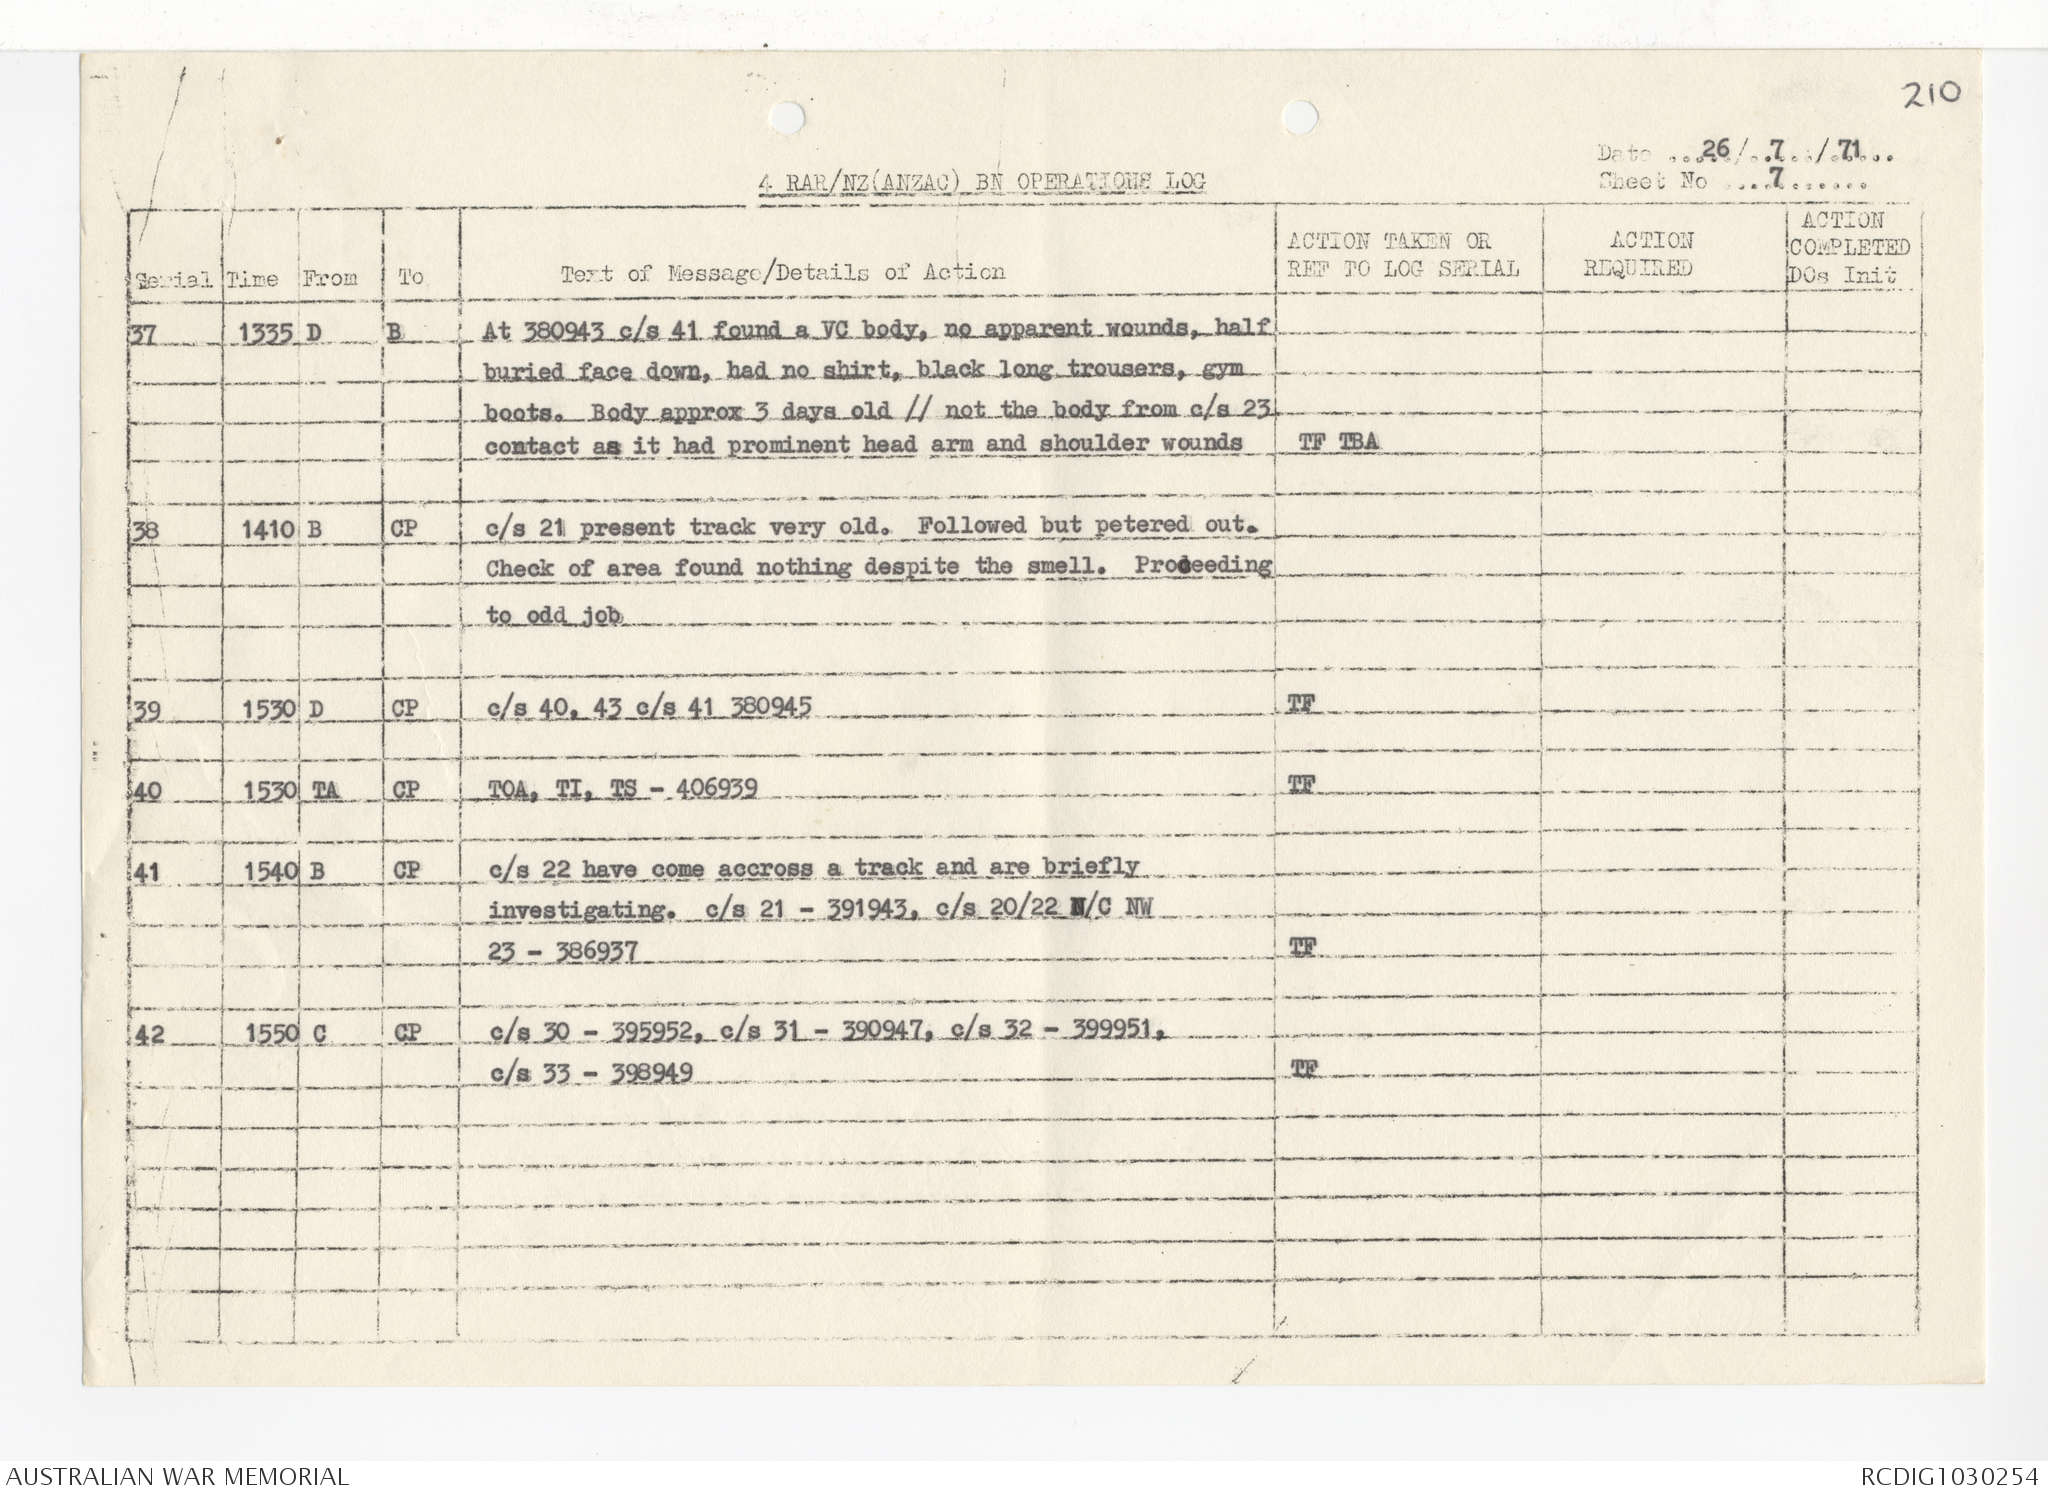 210
Date ..26../..7../..71..
Sheet No ....7..........
4 RAR/NZ(ANZAC) BN OPERATIONS LOG
Serial Time From To Text of Message/Details of Action ACTION TAKEN OR REF TO LOG SERIAL ACTION REQUIRED ACTION COMPLETED DOs Init
37 1335 D B At 380943 c/s 41 found a VC body, no apparent wounds, half
buried face down, had no shirt, black long trousers, gym
boots. Body approx 3 days old // not the body from c/s 23
contact as it had prominent head arm and shoulder wounds TF TBA
38 1410 B CP c/s 21 present track very old. Followed but petered out.
Check of area found nothing despite the smell. Proceeding
to odd job
39 1530 D CP c/s 40, 43 c/s 41 380945 TF
40 1530 TA CP TOA, TI, TS - 406939 TF
41 1540 B CP c/s 22 have come accross a track and are briefly
investigating. c/s 21 - 391943, c/s 20/22 N/C NW
23 - 386937 TF
42 1550 C CP c/s 30 - 395952, c/s 31 - 390947, c/s 32 - 399951,
c/s 33 - 398949 TF
AUSTRALIAN WAR MEMORIAL RCDIG1030254